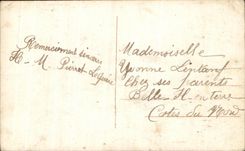 Remerciement sincères
H. M. Pierret
Mademoiselle
Yvonne
Chez ses parents
Belle-Il-en-terre
Côtes du Nord